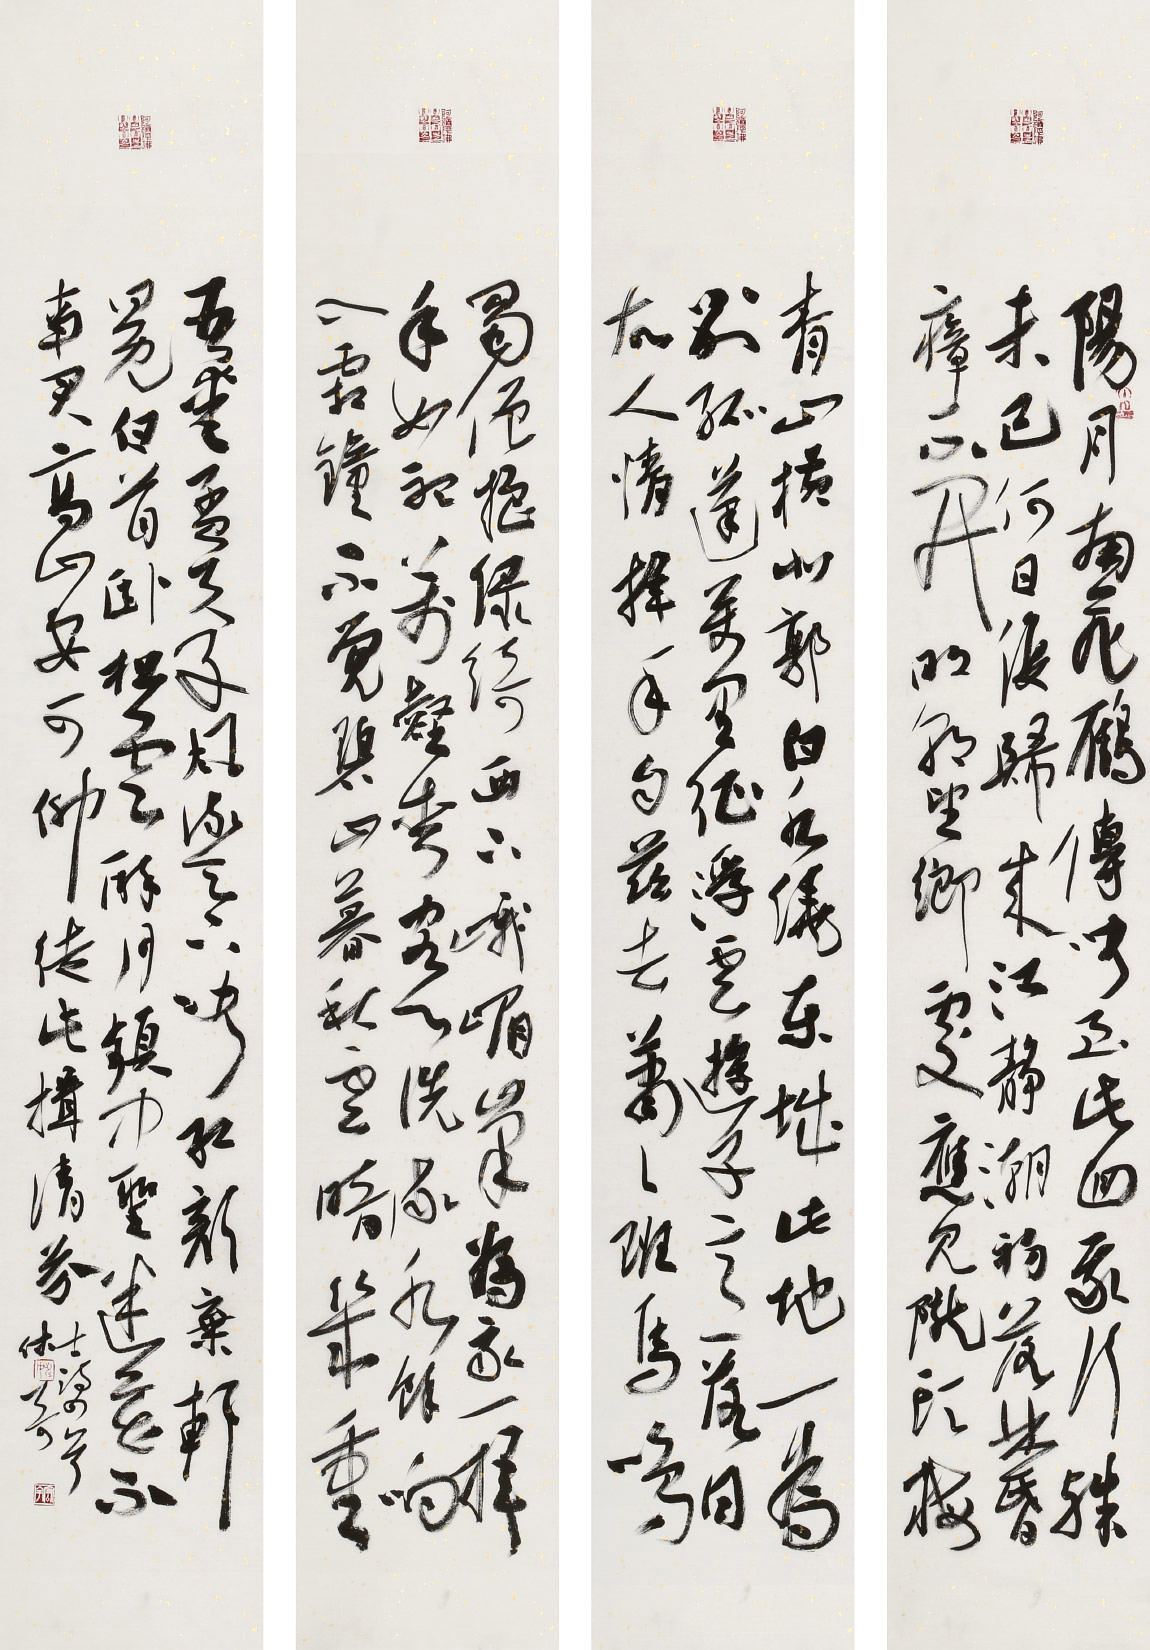 陽月南飛鴈傳聞至此囬我行殊
未已何日復歸來江靜潮初落林昏
瘴不開明朝望鄉處應見隴頭梅
青山橫北郭白水繞東城此地一為
別孤蓬萬里征浮雲遊子意落日
故人情揮手自茲去蕭〻班馬鳴
蜀僧抱綠綺西下峨嵋峯為我一揮
手如聽萬壑松客心洗流水餘响
入霜鐘不覺碧山暮秋雲暗幾重
吾愛孟夫子風流天下聞紅顏棄軒
冕白首臥松雲醉月頻中聖迷花不
事君高山安可仰徒此揖清芬
詩四首